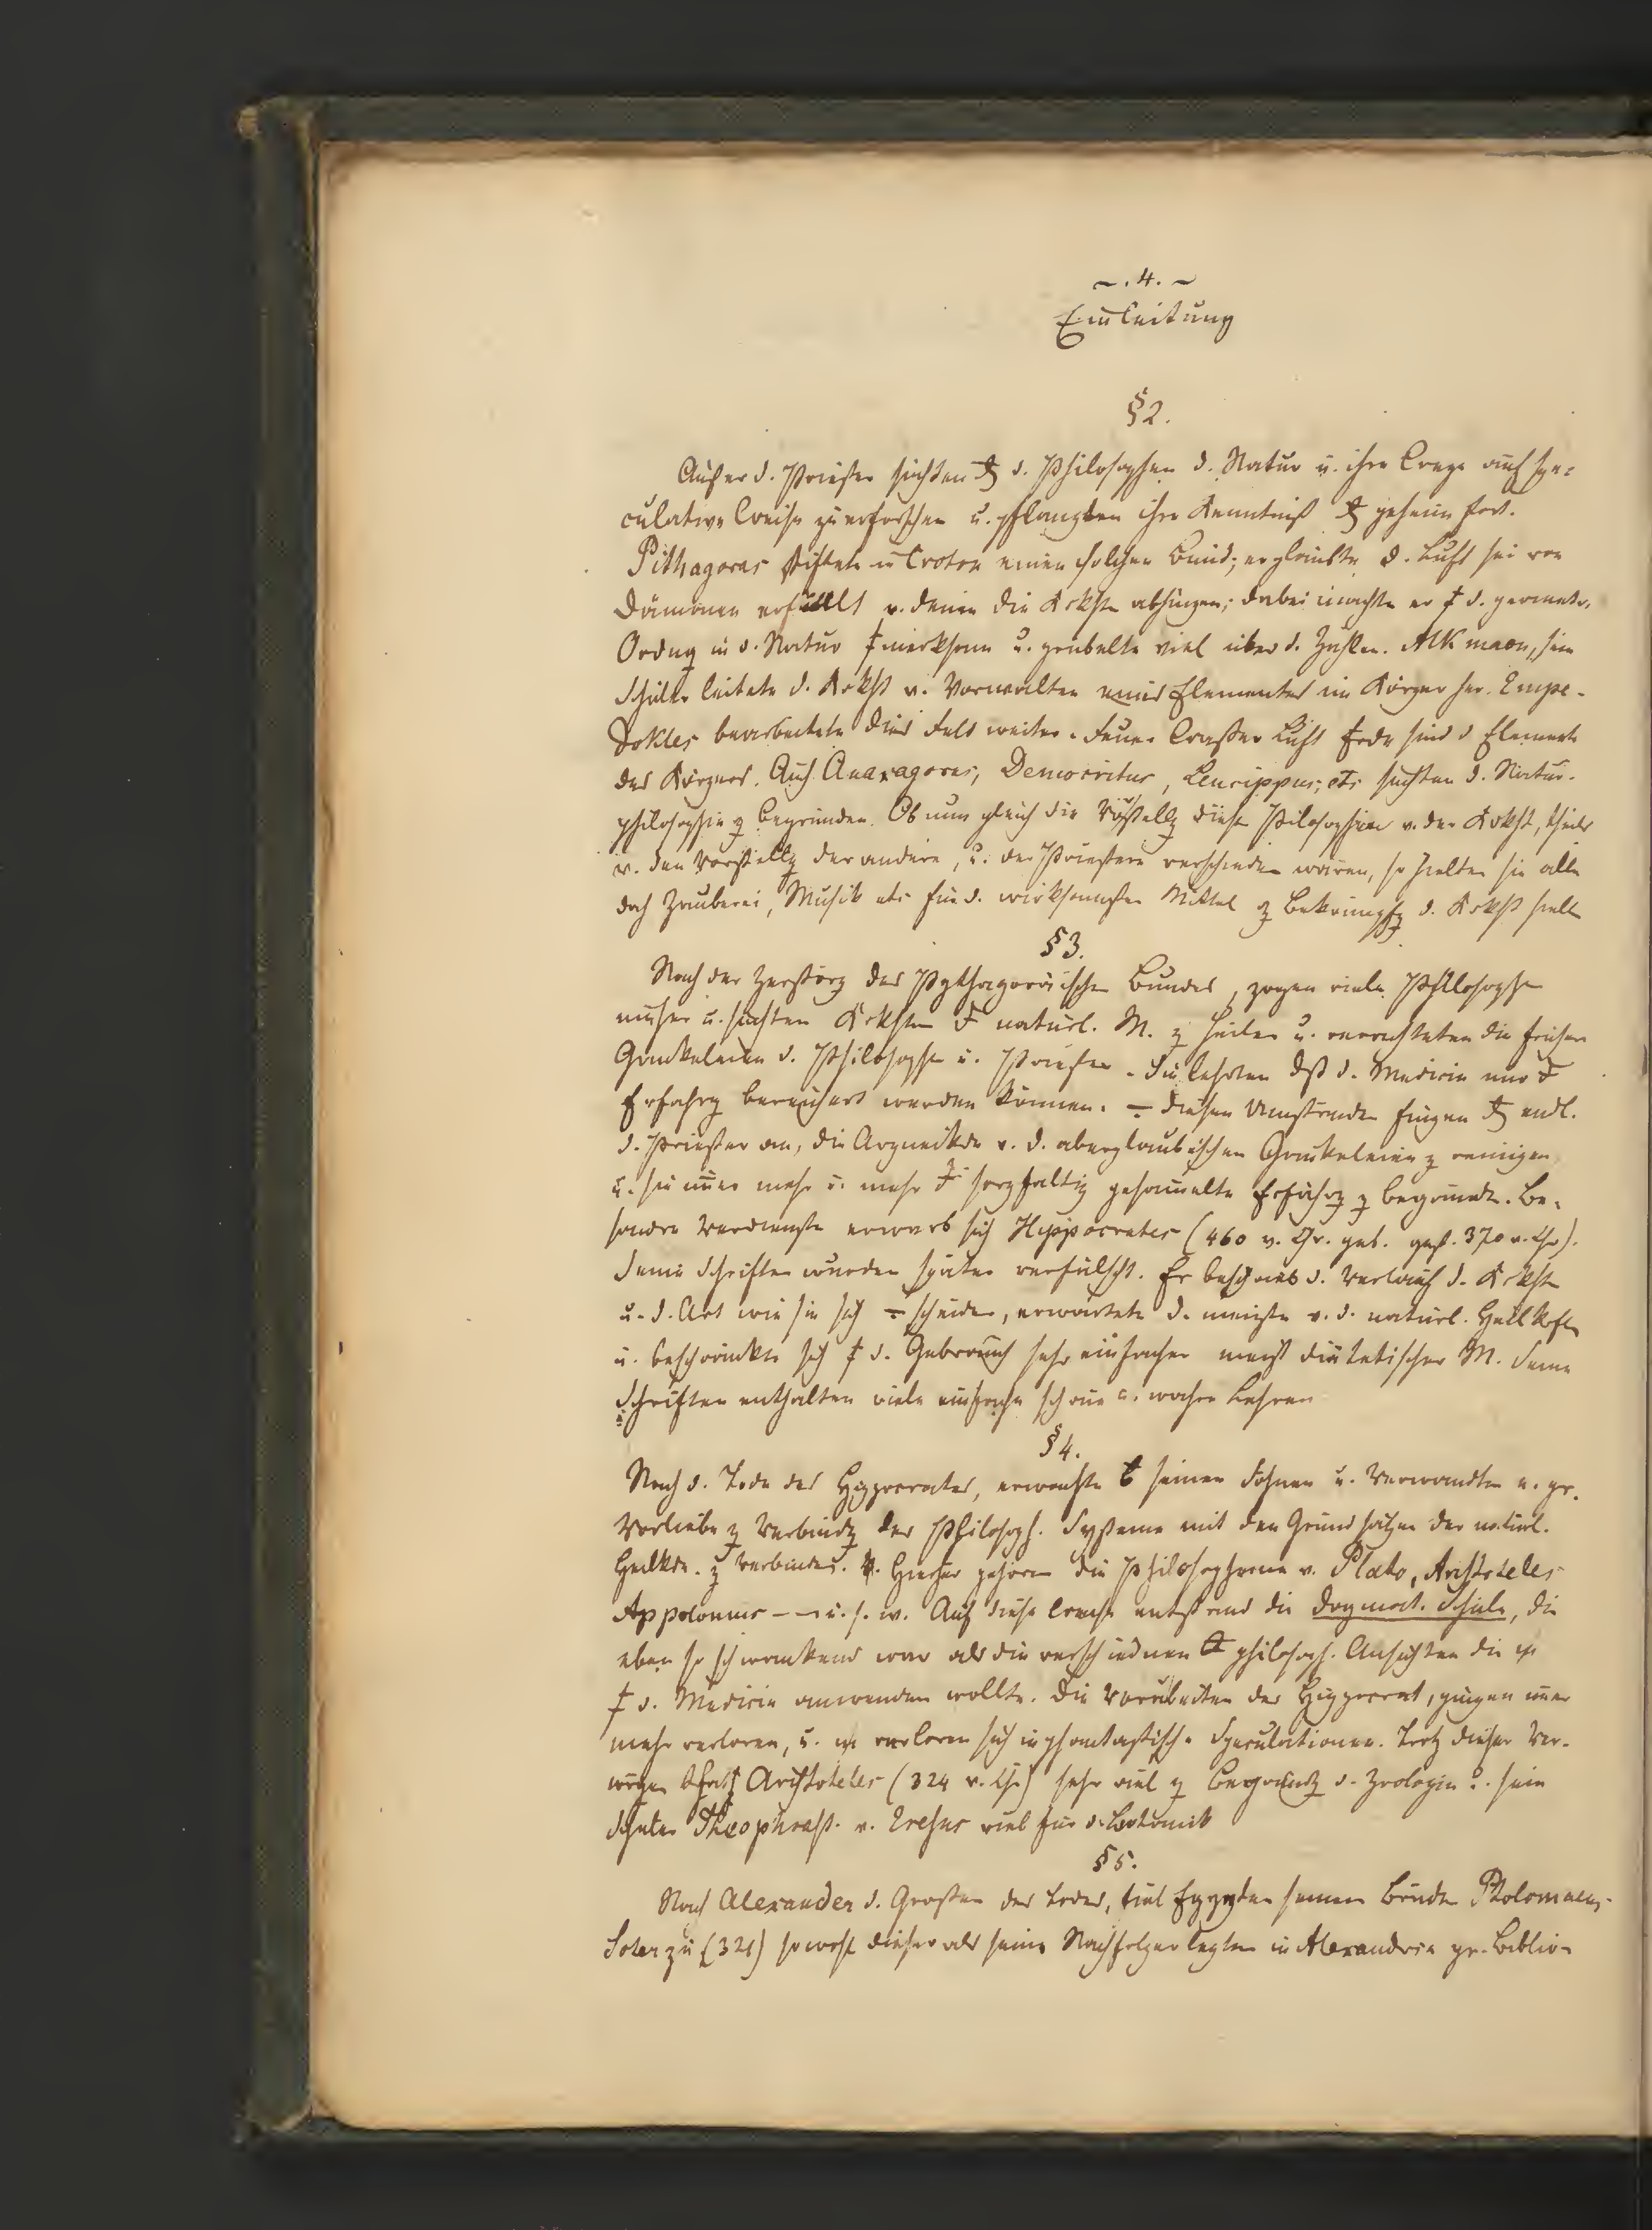 ~ . 4. ~
Einleitung
§ 2.
Außer d. Priester suchten d. Philosophen d. Natur u. ihre auf spe=
culative Weise zu erforschen u. pflanzten ihre Kenntniß geheim fort.
Pithagoras stiftete in Croton einen solchen Bund; er glaubte d. Luft sei von
Dämonen erfüllt v. denen die Krkht abhingen; dabei machte er d. geometr.
Ordng in d. Natur merksam u. grubelte viel uber d. Zahlen. Alkmaon, sein
Schuler leitete d. Krkht v. Vorwalten eines Elementes im Körper her. Empe-
dokles bearbeitete dies Feld weiter. Feuer Wasser Luft Erde sind d Elemente
des Körpers. Auch Anaxagoras, Democritus, Leucippus, etc suchten d. Natur-
philosophie z begrunden. Ob nun gleich die Vorstellg dieser Philosophen v. der Krkht, theils
v. den Vorstellg der andere, u. der Priestern verschieden waren, so hielten sie alle
doch Zauberei, Musik etc fur d. wirksamsten Mittel z Bekämpfg d. Krkht
§ 3.
Nach der Zerstörg des Pythagoräischen Bundes, zogen viele Philosophen
umher u. suchten Krkhten naturl. M. z heilen u. verachteten die frühern
Gaukeleien d. Philosophen u. Priester. Sie lehrten dß d. Medicin nur
Erfahrg bereichert werden können. diesen Umständen fingen endl.
d. Priester an, die Arzneikde v. d. aberglaubischen Gaukeleien z reinigen
u. sie immer mehr u. mehr sorgfaltig gesammelte Erfahrg z begrunden. Be-
sondre Verdienste erwarb sich Hippocrates (460 v. Chr. geb. gest. 370 v. Chr).
Seine Schriften wurden später verfälscht. Er beschrieb d. Verlauf d. Krkht
u. d. Art wie sie sich scheiden, erwartete d. meiste v. d. naturl. Heilkrft
u. beschränkte sich d. Gebrauch sehr einfacher meist diätetischer M. Seine
Schriften enthalten viele einfache schöne u. wahre Lehren
§ 4.
Nach d. Tode des Hippocrates, erwachte seinen Söhnen u. Verwandten e. gr.
Vorliebe z Verbindg der Philosoph. Systeme mit den Grundsätzen der naturl.
Heilkde. z verbinden. Hierher gehören die Philosopheme v. Plato, Aristoteles
Appolonius — — u. s. w. Auf diese Weise entstand die dogmat. Schule, die
eben so schwankend war als die verschiednen philosoph. Ansichten die
d. Medicin anwenden wollte. Die Vorarbeiten des Hippocrat, gingen immer
mehr verloren, u. verloren sich in phantastische Speculationen. Trotz dieser Ver-
Aristoteles (324 v. Chr) sehr viel z Begrundg d. Zoologie u. sein
Schuler Theophrast. v. Eresus viel fur d. Botanik
§ 5.
Nach Alexander d. Großen des Todes, fiel Egypten seinem Bruder Ptolomaeus-
Soter zu (321) sowohl dieser als seine Nachfolger legten in Alexandria gr. Biblio-